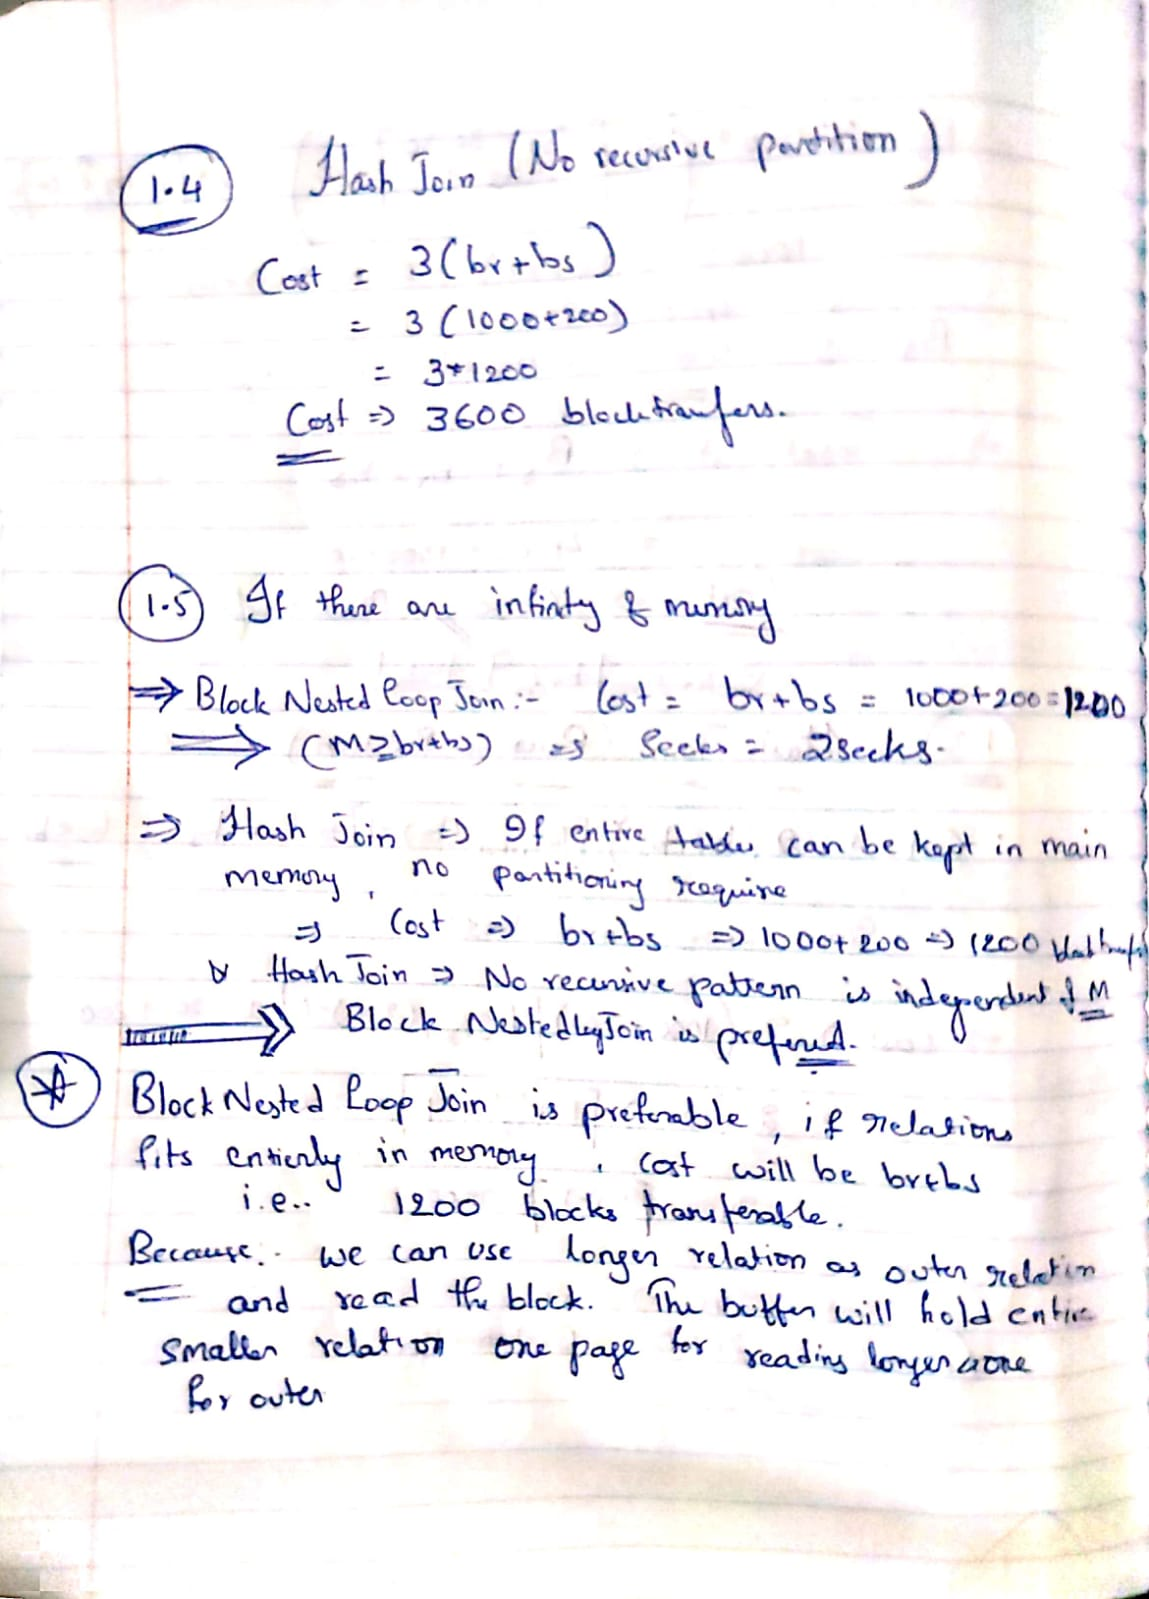 1.4 Hash Join (No recursive partition)
Cost = 3(br+bs)
= 3(1000+200)
= 3*1200
Cost => 3600 block tranfers.
1.5 If there are infinty of memory
=> Block Nested Loop Join :- Cost = br+bs = 1000+200=1200
=> (M≥br+bs) => Seeks = 2 seeks.
=> Hash Join => If entire table can be kept in main
memory, no partitioning require
=> Cost => br+bs => 1000+200 => 1200
Hash Join => No recursive pattern is independent of M
Block Nested Join is preferred.
Block Nested Loop Join is preferable, if relations
fits entierly in memory, cost will be br+bs
i.e.. 1200 blocks transferable.
Because:- we can use longer relation as outer relation
and read the block. The buffer will hold entire
smaller relation one page for reading longer
for outer